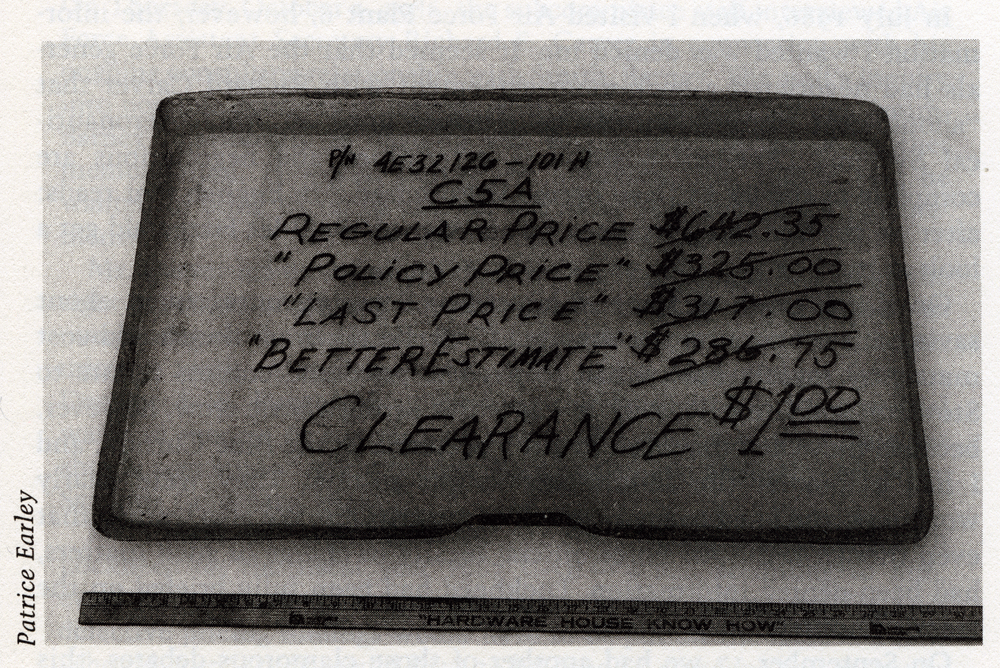 P/N 4E32126-101H
C5A
REGULAR PRICE $642.35
"POLICY PRICE" $325.00
"LAST PRICE" $317.00
"BETTER ESTIMATE" $286.75
CLEARANCE $1.00
"HARDWARE HOUSE KNOW HOW"
Patrice Earley